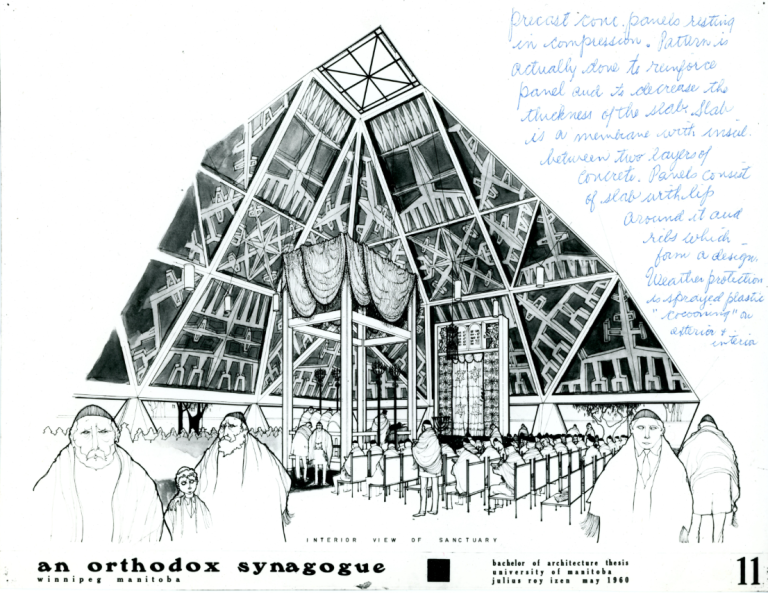 precast conc. panels resting
in compression. Pattern is
actually done to reinforce
panel and to decrease the
thickness of the slab. Slab
is a membrane with insul.
between two layers of
concrete. Panels consist
of slab with lip
around it and
ribs which
form a design.
Weather protection
is sprayed plastic
"cocooning" on
exterior &
interior
INTERIOR VIEW OF SANCTUARY
an orthodox synagogue
winnipeg manitoba
bachelor of architecture thesis
university of manitoba
julius roy izen may 1960
11